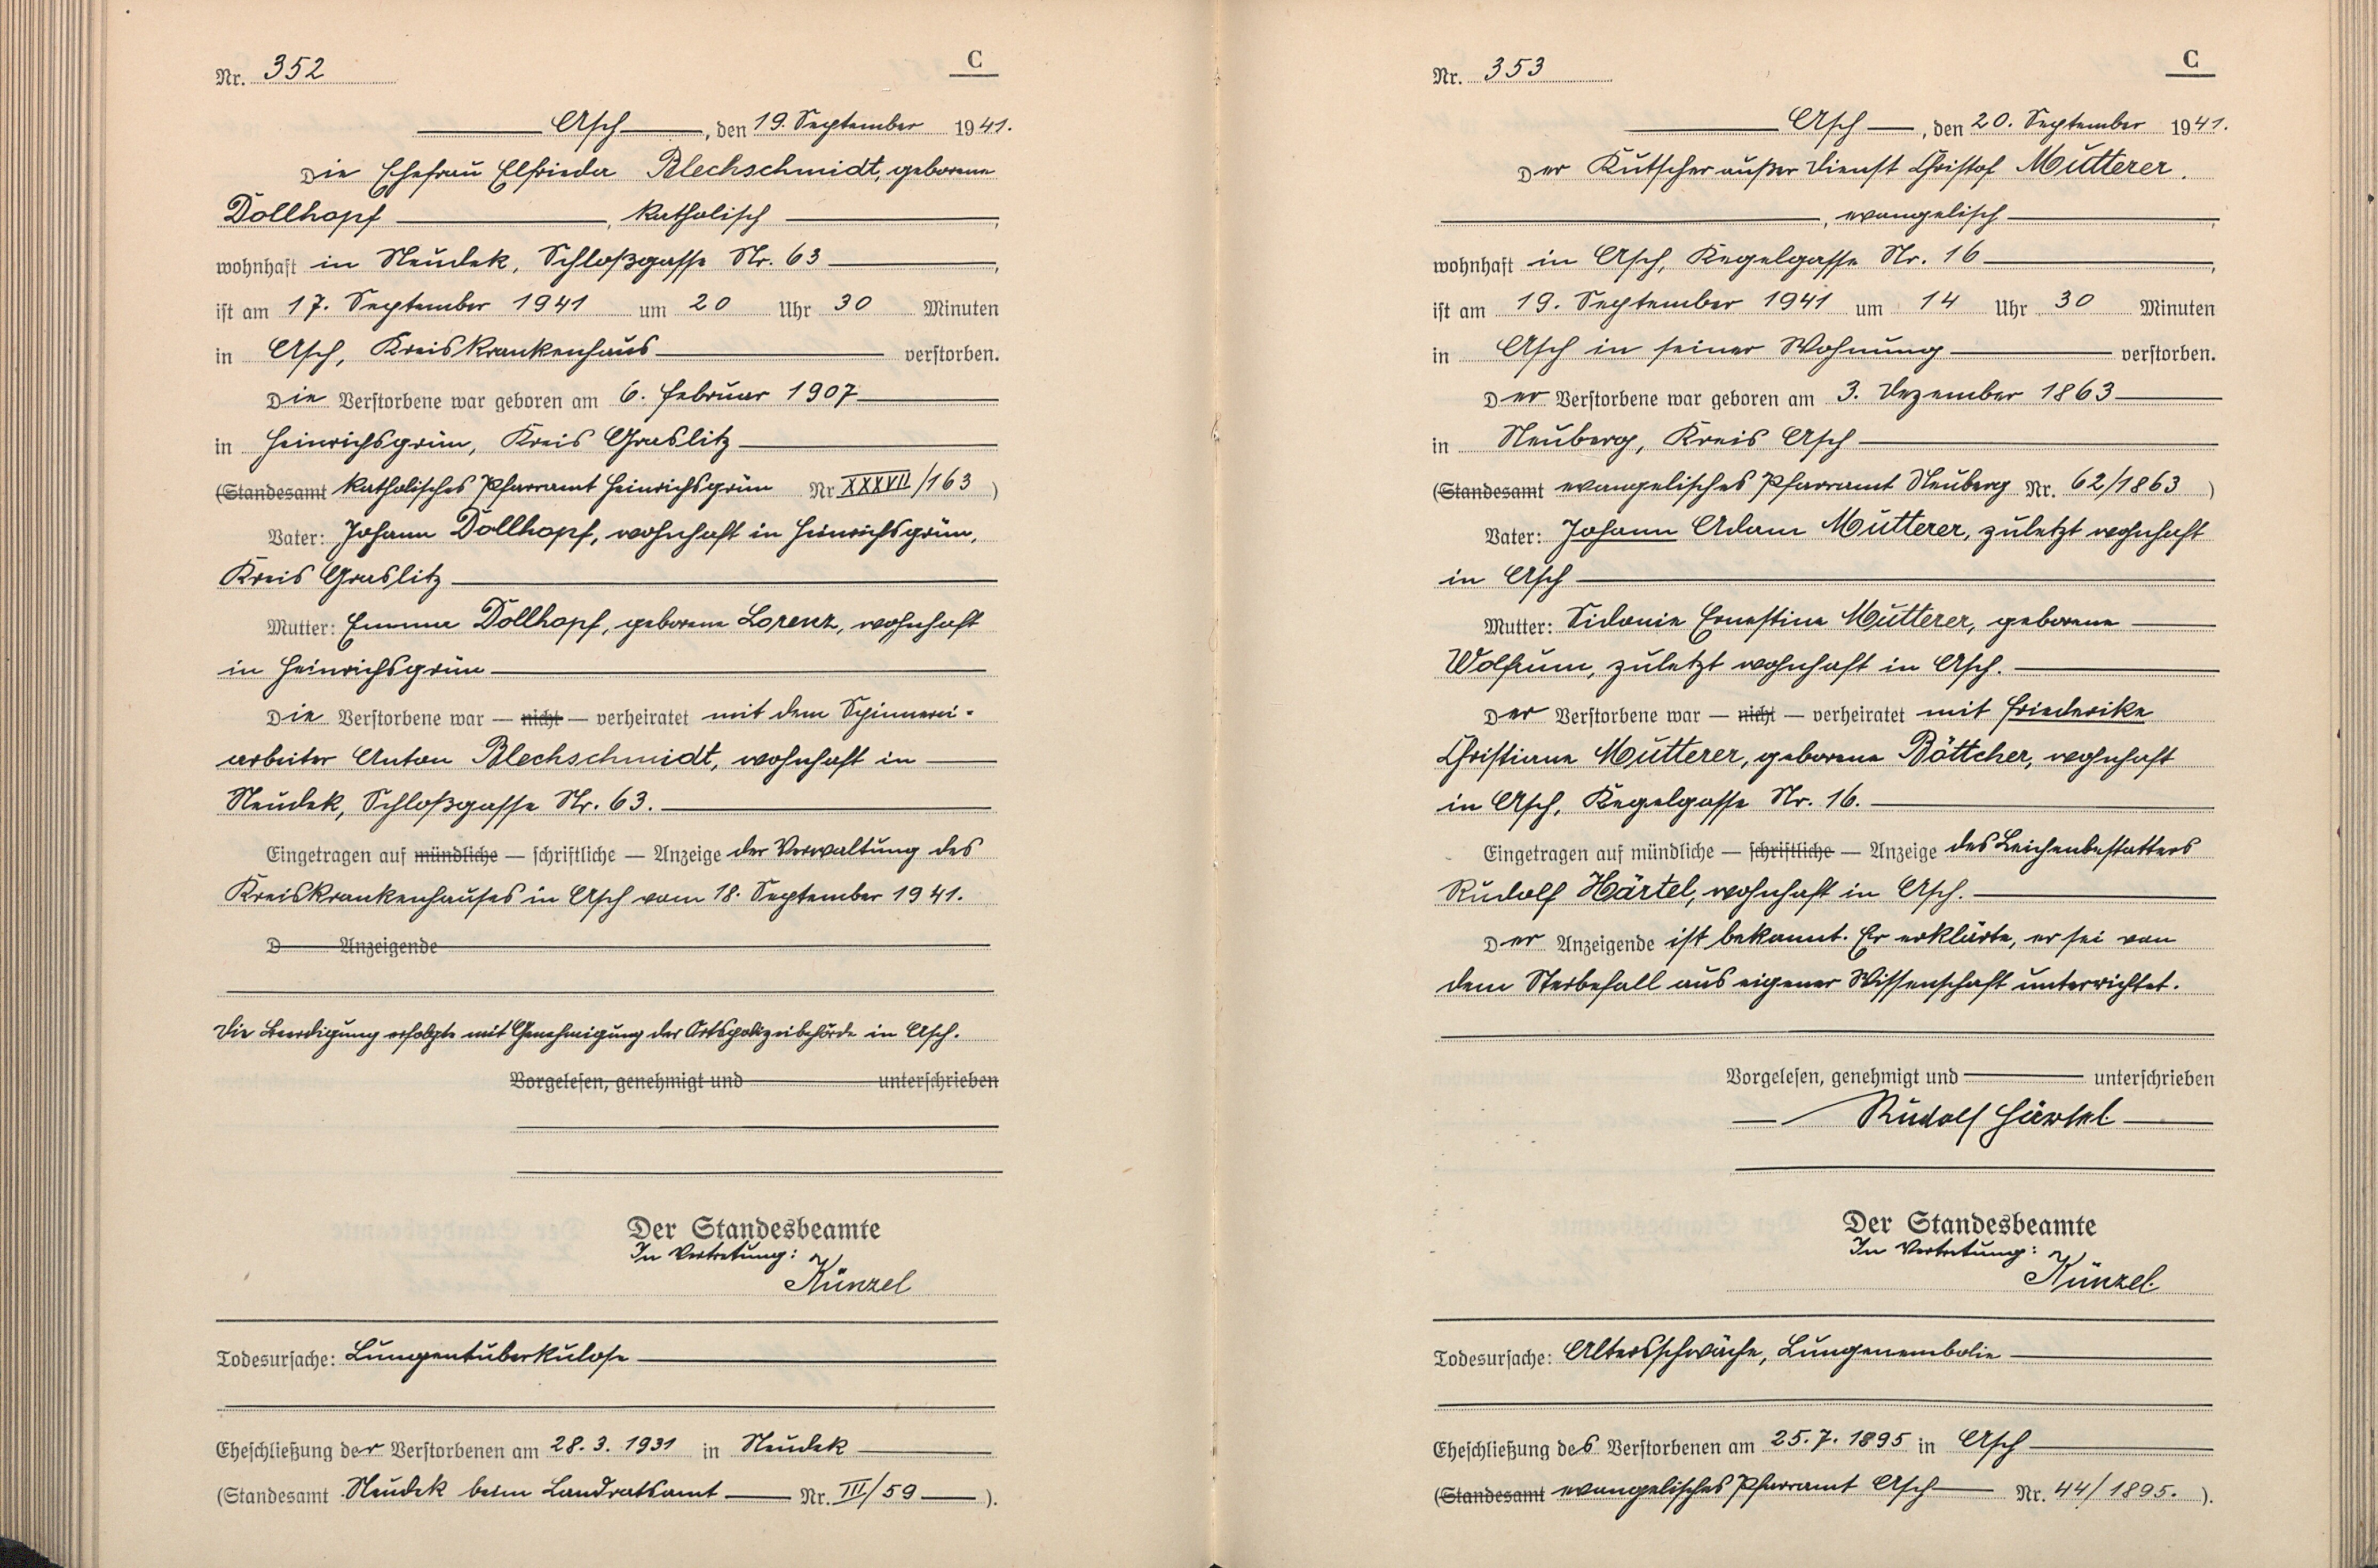 Nr. 352
C
Asch, den 19. September 1941.
Die Ehefrau Elfrieda Blechschmidt, geborene
Dollhopf, katholisch,
wohnhaft in Neudek, Schloßgasse Nr. 63,
ist am 17. September 1941 um 20 Uhr 30 Minuten
in Asch, Kreiskrankenhaus verstorben.
Die Verstorbene war geboren am 6. Februar 1907
in Heinrichsgrün, Kreis Graslitz
(Standesamt katholisches Pfarramt Heinrichsgrün Nr XXXVII/163)
Vater: Johann Dollhopf, wohnhaft in Heinrichsgrün,
Kreis Graslitz
Mutter: Emma Dollhopf, geborene Lorenz, wohnhaft
in Heinrichsgrün
Die Verstorbene war — nicht — verheiratet mit dem Spinnerei-
arbeiter Anton Blechschmidt, wohnhaft in
Neudek, Schloßgasse Nr. 63.
Eingetragen auf mündliche — schriftliche — Anzeige der Verwaltung des
Kreiskrankenhauses in Asch vom 18. September 1941.
D Anzeigende
Die Beerdigung erfolgte mit Genehmigung der Ortspolizeibehörde in Asch.
Vorgelesen, genehmigt und unterschrieben
Der Standesbeamte
In Vertretung:
Künzel
Todesursache: Lungentuberkulose
Eheschließung der Verstorbenen am 28.3.1931 in Neudek
(Standesamt Neudek beim Landratsamt Nr. III/59).
Nr. 353
C
Asch, den 20. September 1941.
Der Kutscher außer Dienst Christof Mütterer.
, evangelisch,
wohnhaft in Asch, Kegelgasse Nr. 16,
ist am 19. September 1941 um 14 Uhr 30 Minuten
in Asch in seiner Wohnung verstorben.
Der Verstorbene war geboren am 3. Dezember 1863
in Neuberg, Kreis Asch
(Standesamt evangelisches Pfarramt Neuberg Nr. 62/1863)
Vater: Johann Adam Mütterer, zuletzt wohnhaft
in Asch
Mutter: Sidonie Ernestine Mütterer, geborene
Wolfrum, zuletzt wohnhaft in Asch.
Der Verstorbene war — nicht — verheiratet mit Friederike
Christiane Mütterer, geborene Böttcher, wohnhaft
in Asch, Kegelgasse Nr. 16.
Eingetragen auf mündliche — schriftliche — Anzeige des Leichenbestatters
Rudolf Härtel, wohnhaft in Asch.
Der Anzeigende ist bekannt. Er erklärte, er sei von
dem Sterbefall aus eigener Wissenschaft unterrichtet.
Vorgelesen, genehmigt und unterschrieben
Rudolf Härtel
Der Standesbeamte
In Vertretung:
Künzel.
Todesursache: Altersschwäche, Lungenembolie
Eheschließung des Verstorbenen am 25.7.1895 in Asch
(Standesamt evangelisches Pfarramt Asch Nr. 44/1895.).